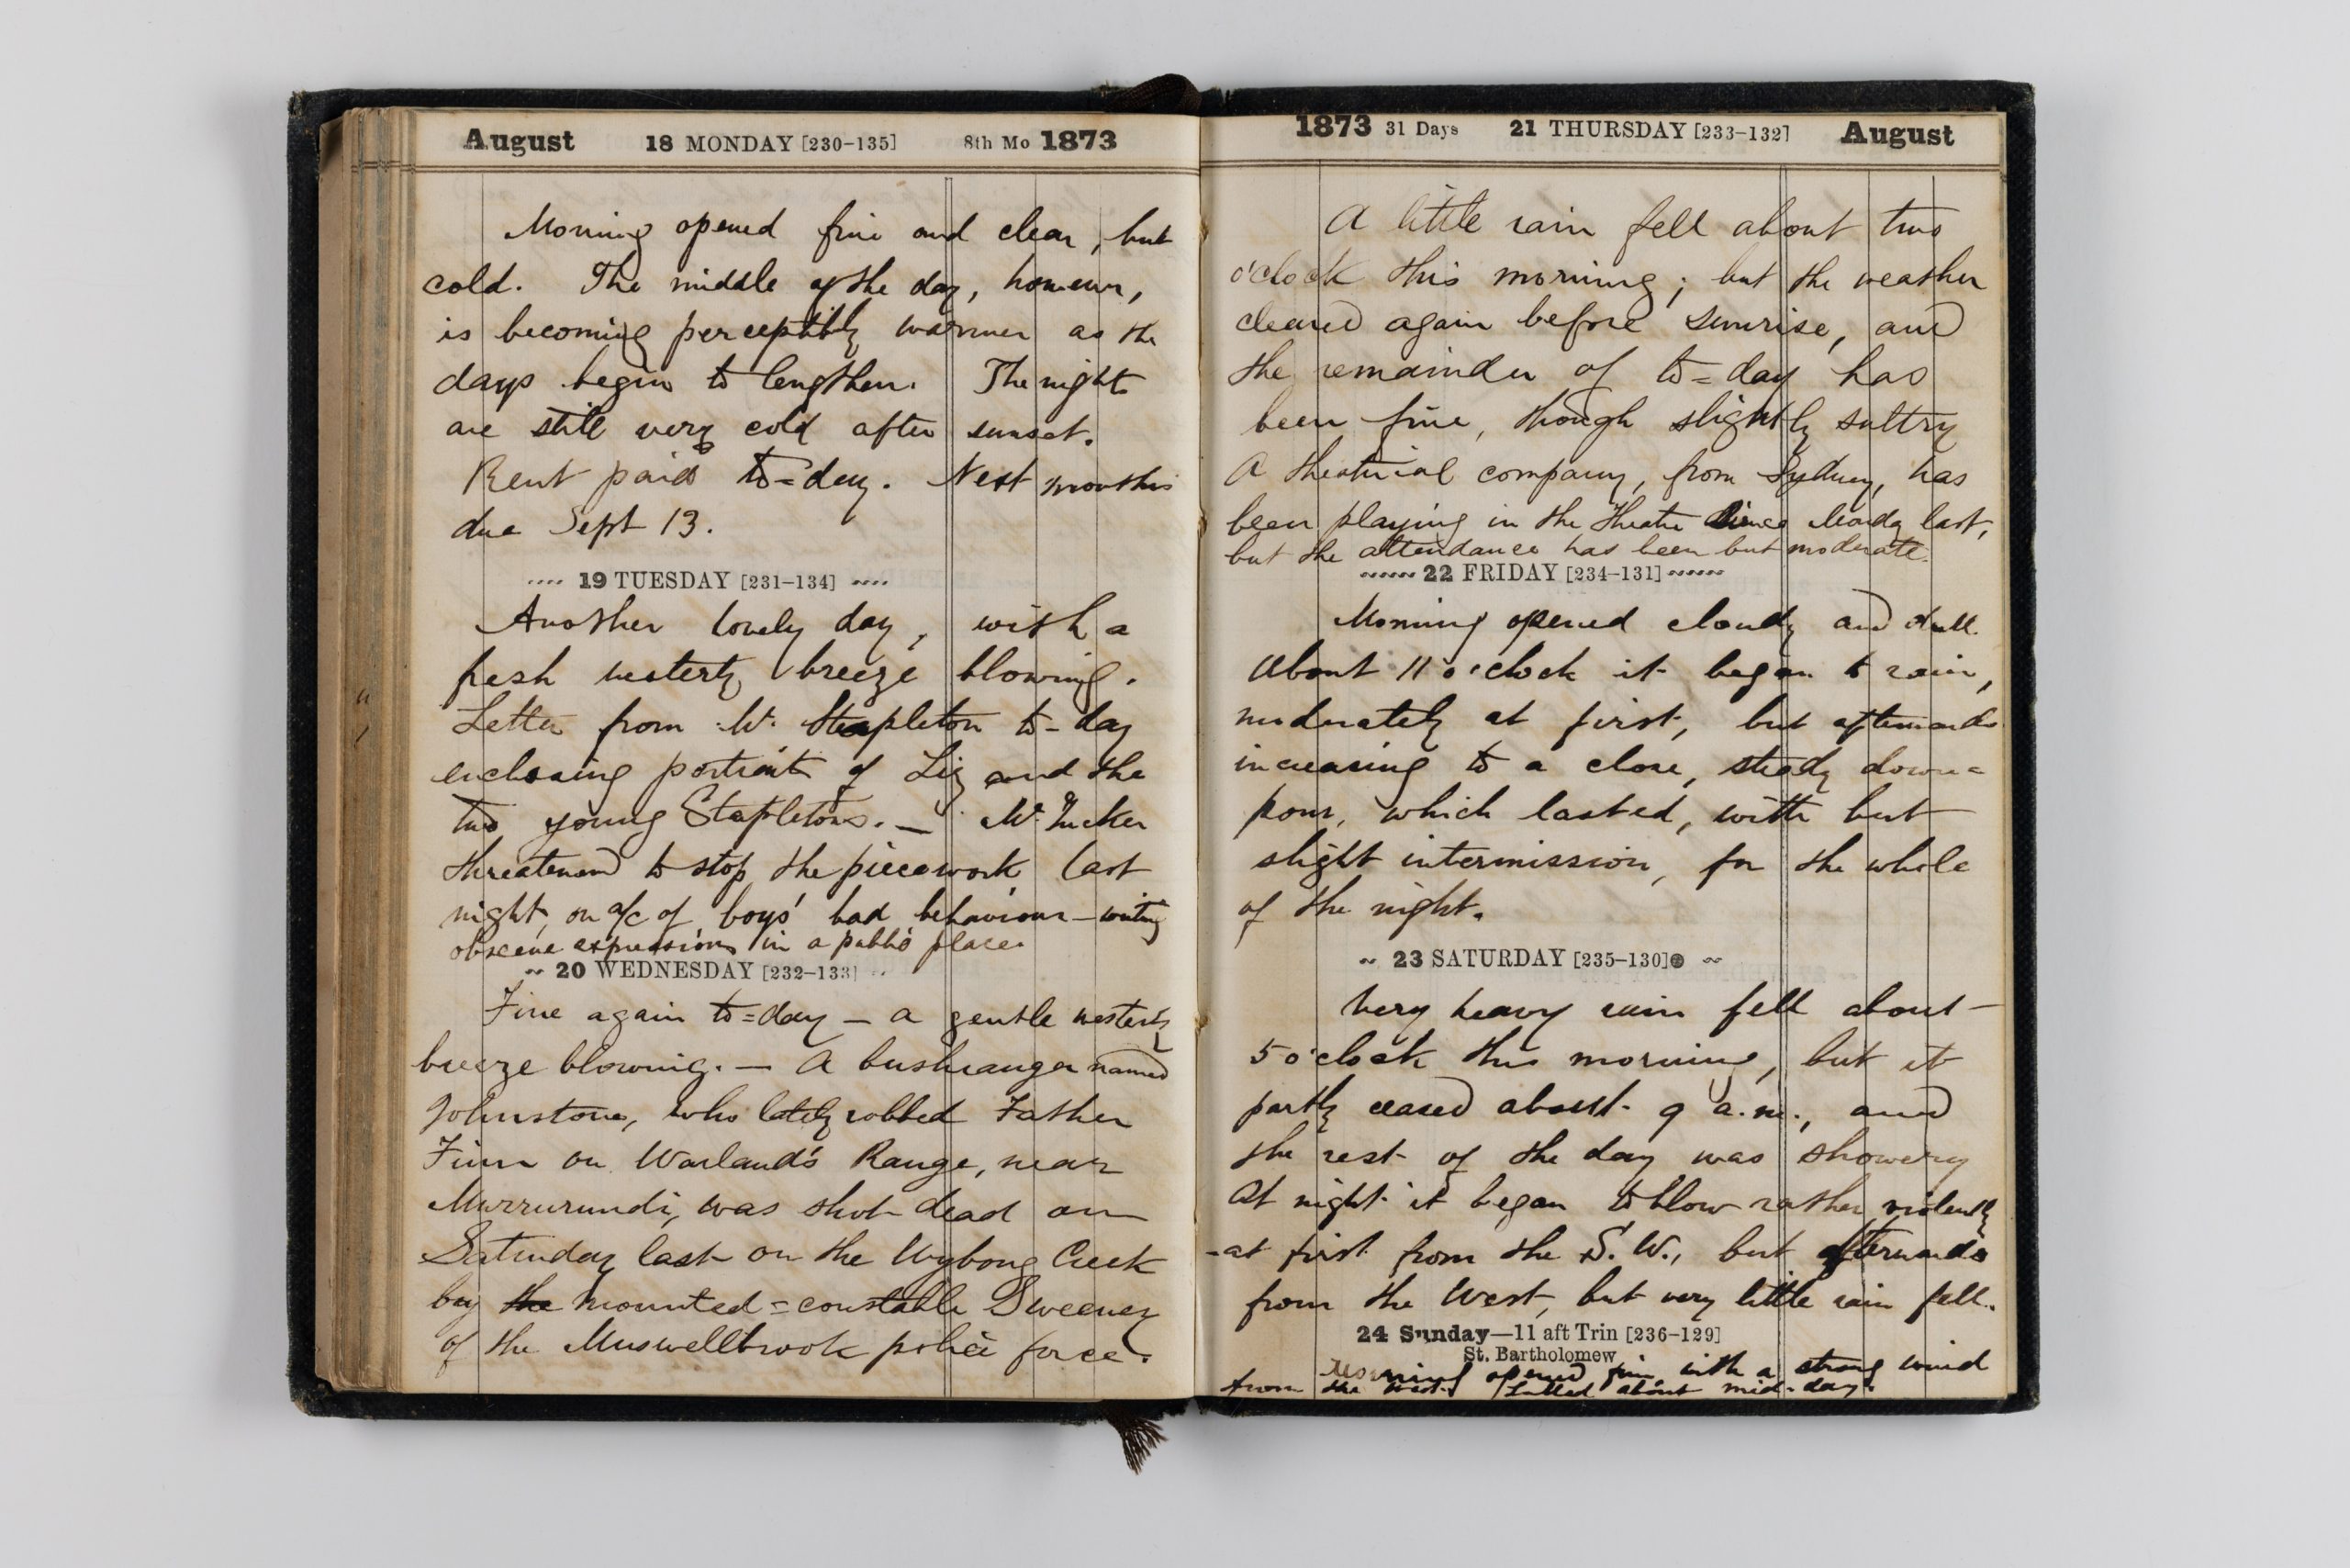 August 18 MONDAY [230-135] 8th Mo 1873
Morning opened fine and clear, but
cold. The middle of the day, however,
is becoming perceptibly warmer as the
days begin to lengthen. The night
are still very cold after sunset.
Rent paid to=day. Next months
due Sept 13.
19 TUESDAY [231-134]
Another lovely day, with a
fresh westerly breeze blowing.
Letter from W. Stapleton to-day
enclosing portrait of Liz and the
two young Stapletons. — Mr. Tucker
threatened to stop the piecework last
night, on a/c of boys' bad behaviour — writing
obscene expressions in a public place.
~ 20 WEDNESDAY [232-133]
Fine again to=day — a gentle westerly
breeze blowing. — A bushranger named
Johnstone, who lately robbed Father
Finn on Warland's Range, near
Murrurundi, was shot dead on
Saturday last on the Wybong Creek
by the mounted=constable Sweeney
of the Muswellbrook police force.
1873 31 Days 21 THURSDAY [233-132] August
A little rain fell about two
o'clock this morning; but the weather
cleared again before sunrise, and
the remainder of to=day has
been fine, though slightly sultry
A theatrical company, from Sydney, has
been playing in the Theatre since Monday last,
but the attendance has been but moderate.
22 FRIDAY [234-131]
Morning opened cloudy and dull.
About 11 o'clock it began to rain,
moderately at first, but afterwards
increasing to a close, steady down=
pour, which lasted, with but
slight intermission, for the whole
of the night.
~ 23 SATURDAY [235-130] ~
Very heavy rain fell about
5 o'clock this morning, but it
partly ceased about 9 a.m., and
the rest of the day was showery
At night it began to blow rather violently
-at first from the S.W., but afterwards
from the West, but very little rain fell.
24 Sunday—11 aft Trin [236-129]
St. Bartholomew
Morning opened fine with a strong wind
from the West. Lulled about mid-day.